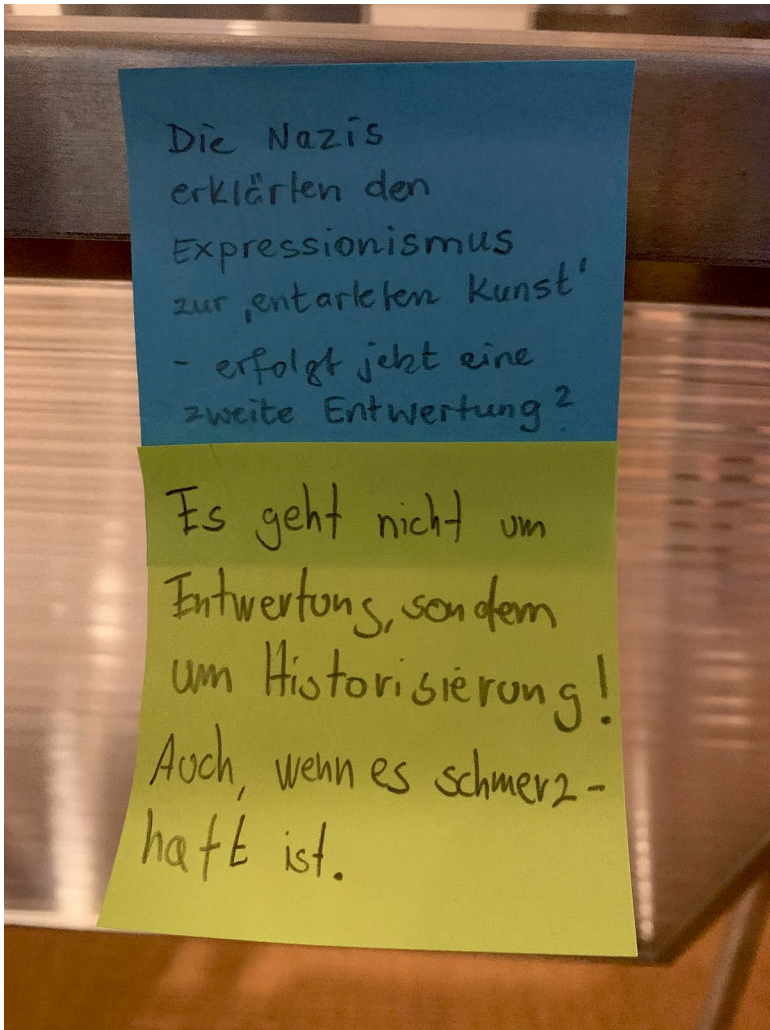 Die Nazis
erklärten den
Expressionismus
zur ‚entarteten Kunst'
- erfolgt jetzt eine
zweite Entwertung?
Es geht nicht um
Entwertung, sondern
um Historisierung!
Auch, wenn es schmerz-
haft ist.